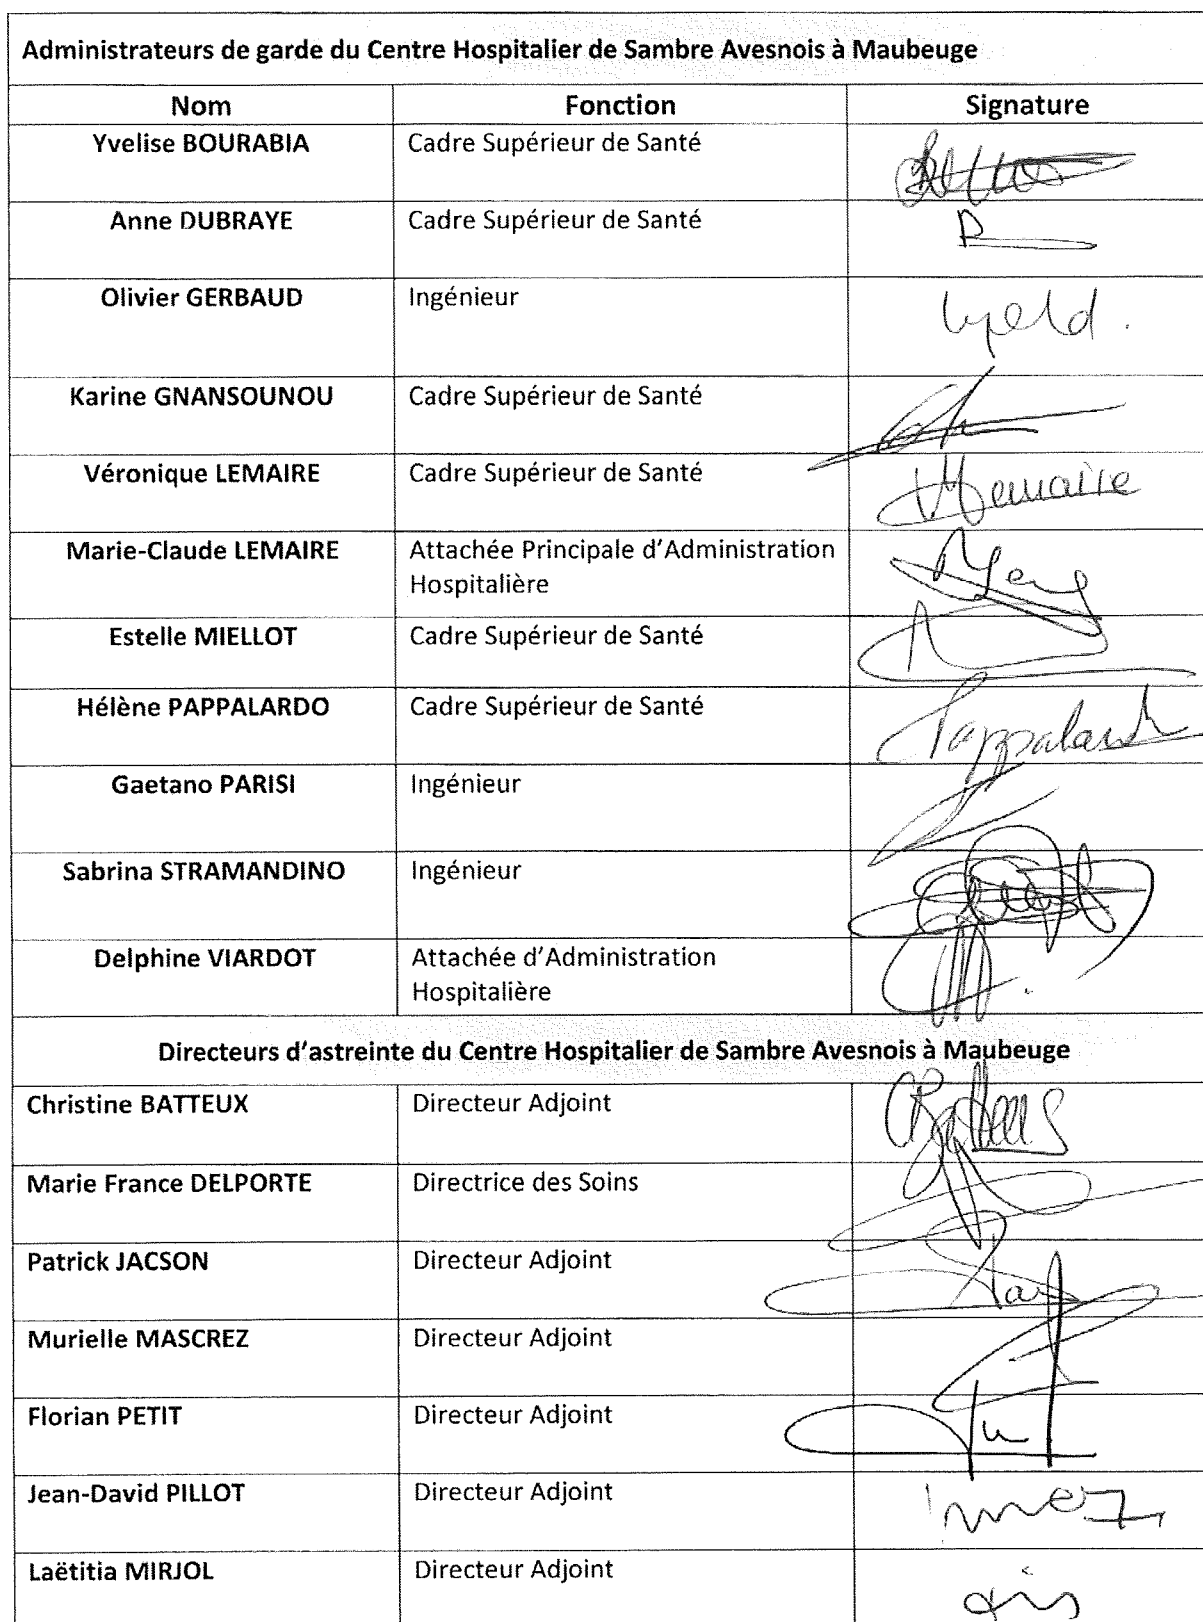 Administrateurs de garde du Centre Hospitalier de Sambre Avesnois à Maubeuge
Nom Fonction Signature
Yvelise BOURABIA Cadre Supérieur de Santé
Anne DUBRAYE Cadre Supérieur de Santé
Olivier GERBAUD Ingénieur
Karine GNANSOUNOU Cadre Supérieur de Santé
Véronique LEMAIRE Cadre Supérieur de Santé
Marie-Claude LEMAIRE Attachée Principale d'Administration
Hospitalière
Estelle MIELLOT Cadre Supérieur de Santé
Hélène PAPPALARDO Cadre Supérieur de Santé
Gaetano PARISI Ingénieur
Sabrina STRAMANDINO Ingénieur
Delphine VIARDOT Attachée d'Administration
Hospitalière
Directeurs d'astreinte du Centre Hospitalier de Sambre Avesnois à Maubeuge
Christine BATTEUX Directeur Adjoint
Marie France DELPORTE Directrice des Soins
Patrick JACSON Directeur Adjoint
Murielle MASCREZ Directeur Adjoint
Florian PETIT Directeur Adjoint
Jean-David PILLOT Directeur Adjoint
Laëtitia MIRJOL Directeur Adjoint